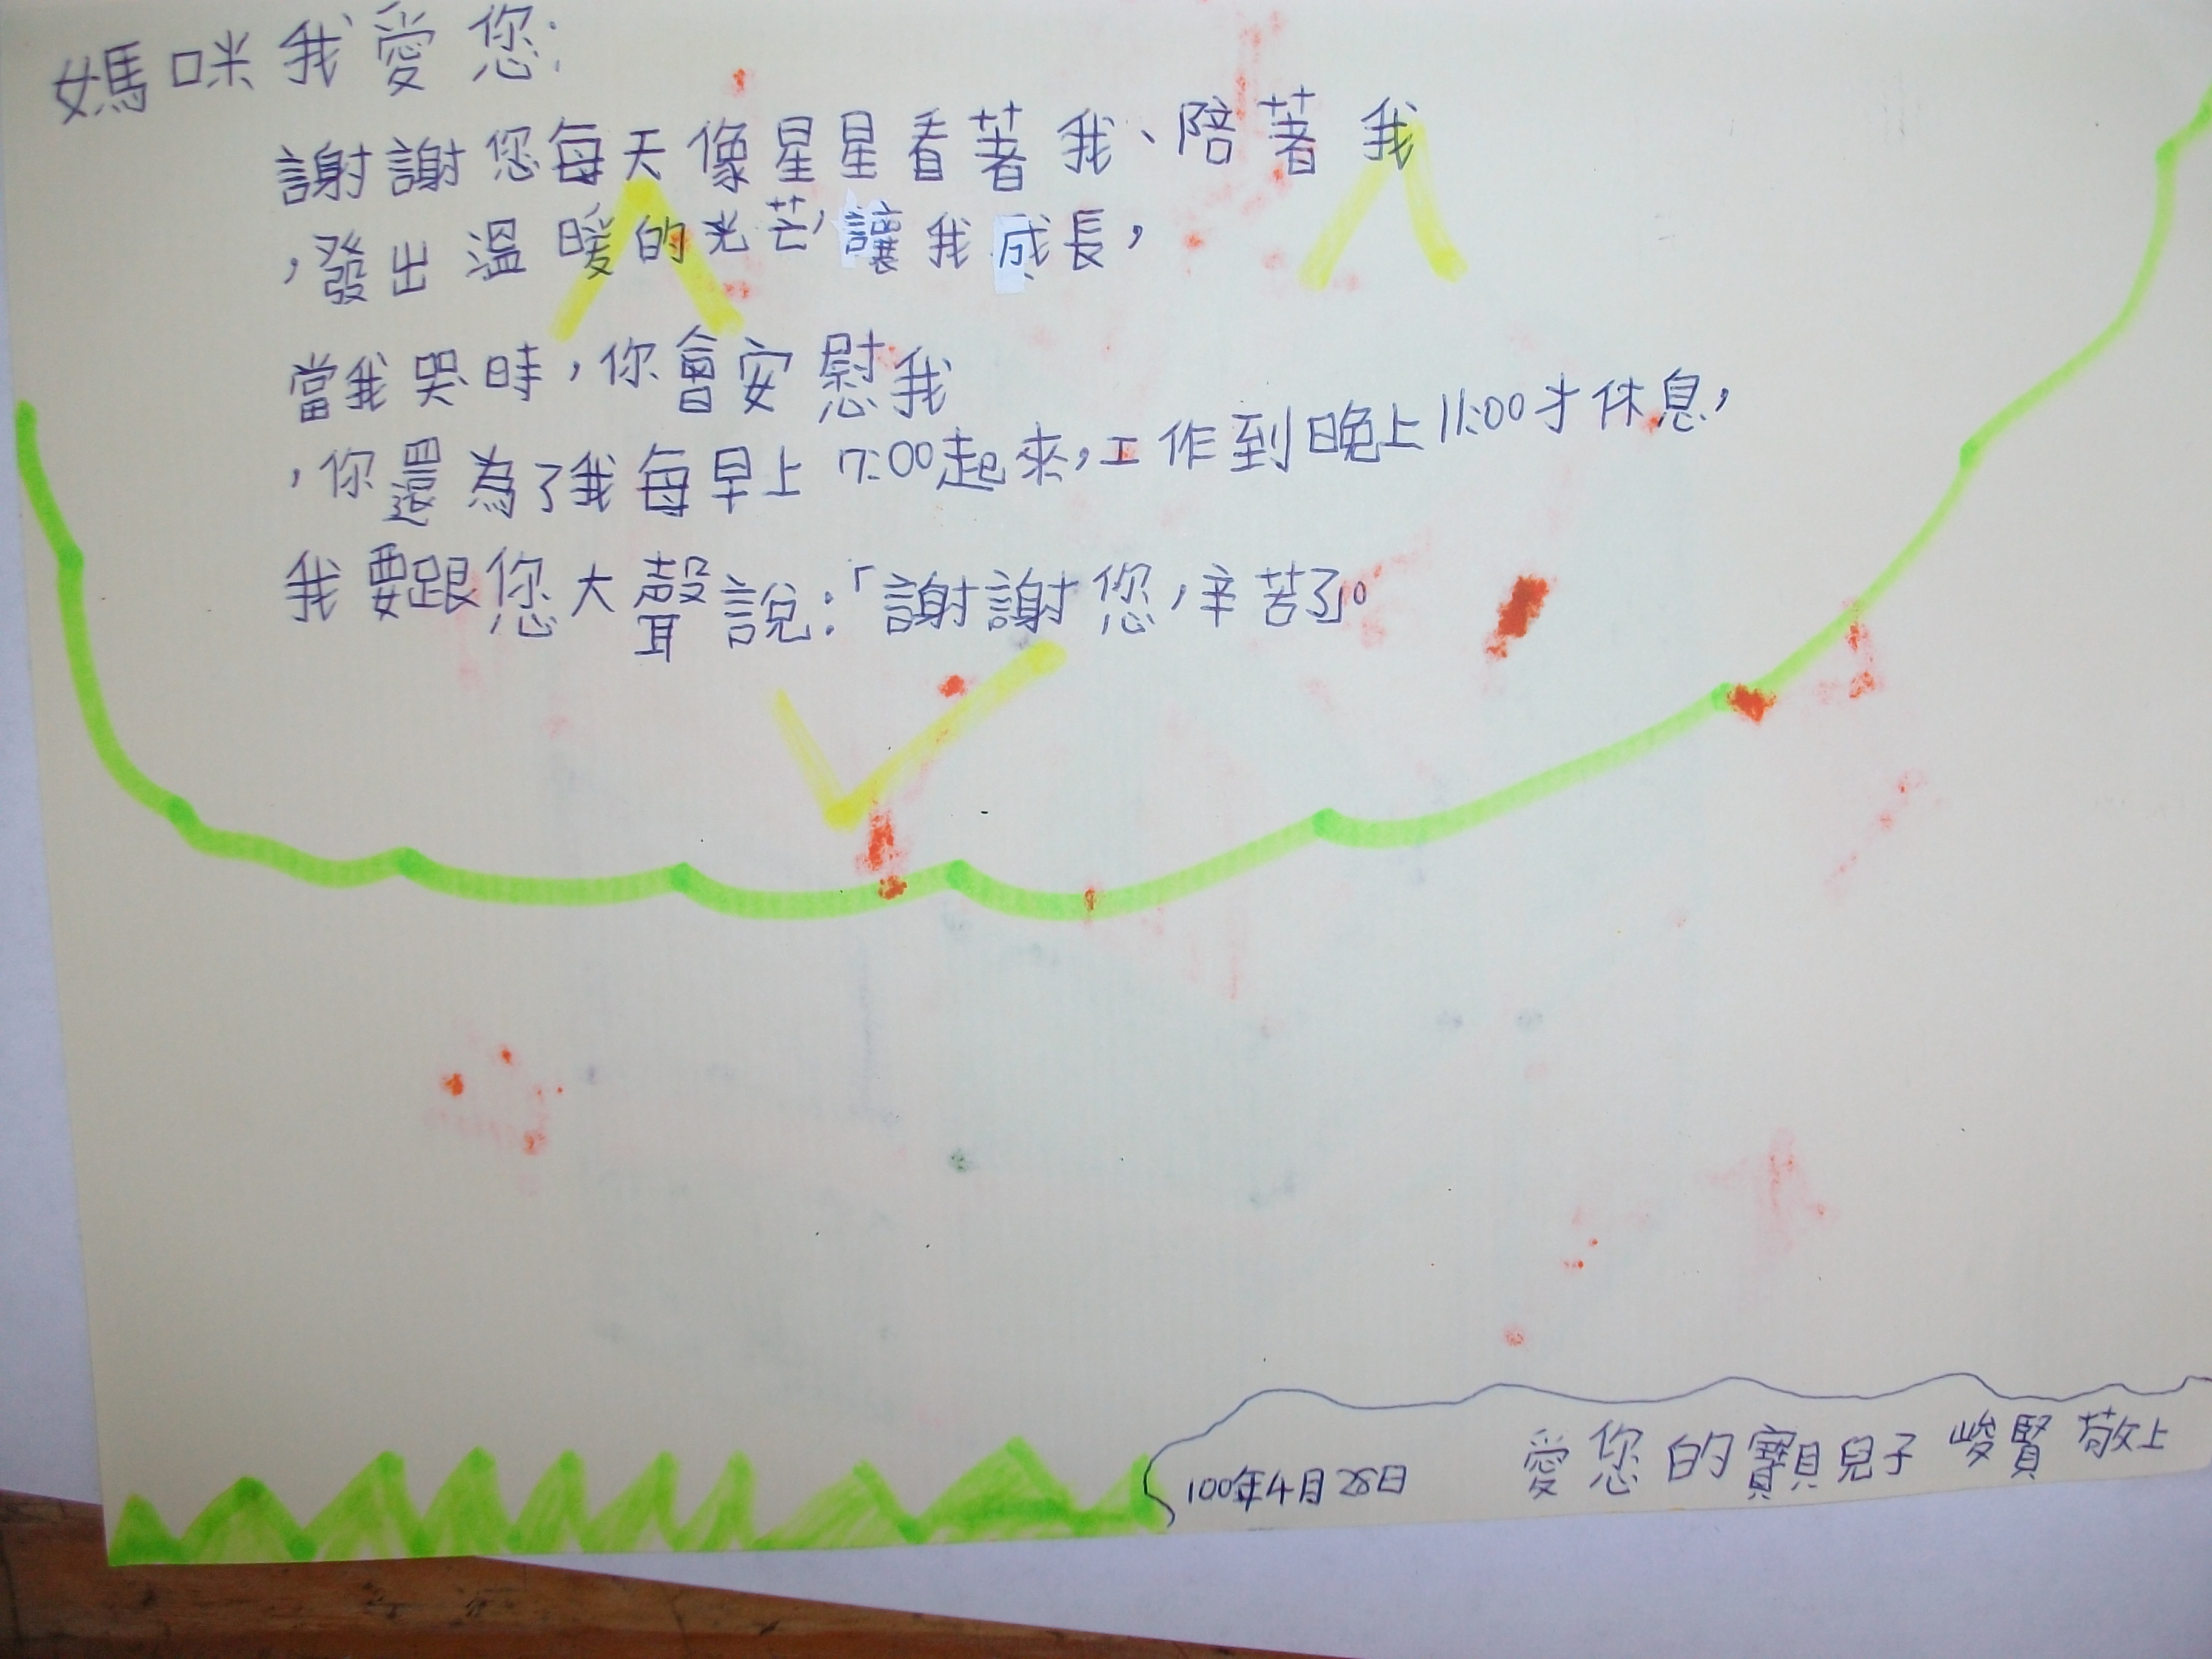 媽咪我愛您:
謝謝您每天像星星看著我、陪著我
,發出溫暖的光芒,讓我成長,
當我哭時,你會安慰我
,你還為了我每早上7:00起來,工作到晚上11:00才休息,
我要跟您大聲說:「謝謝您,辛苦了。
100年4月28日 愛您的寶貝兒子 峻賢 敬上